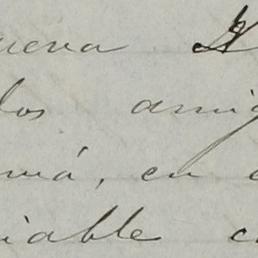 ueva
los amig
má, en
iable c